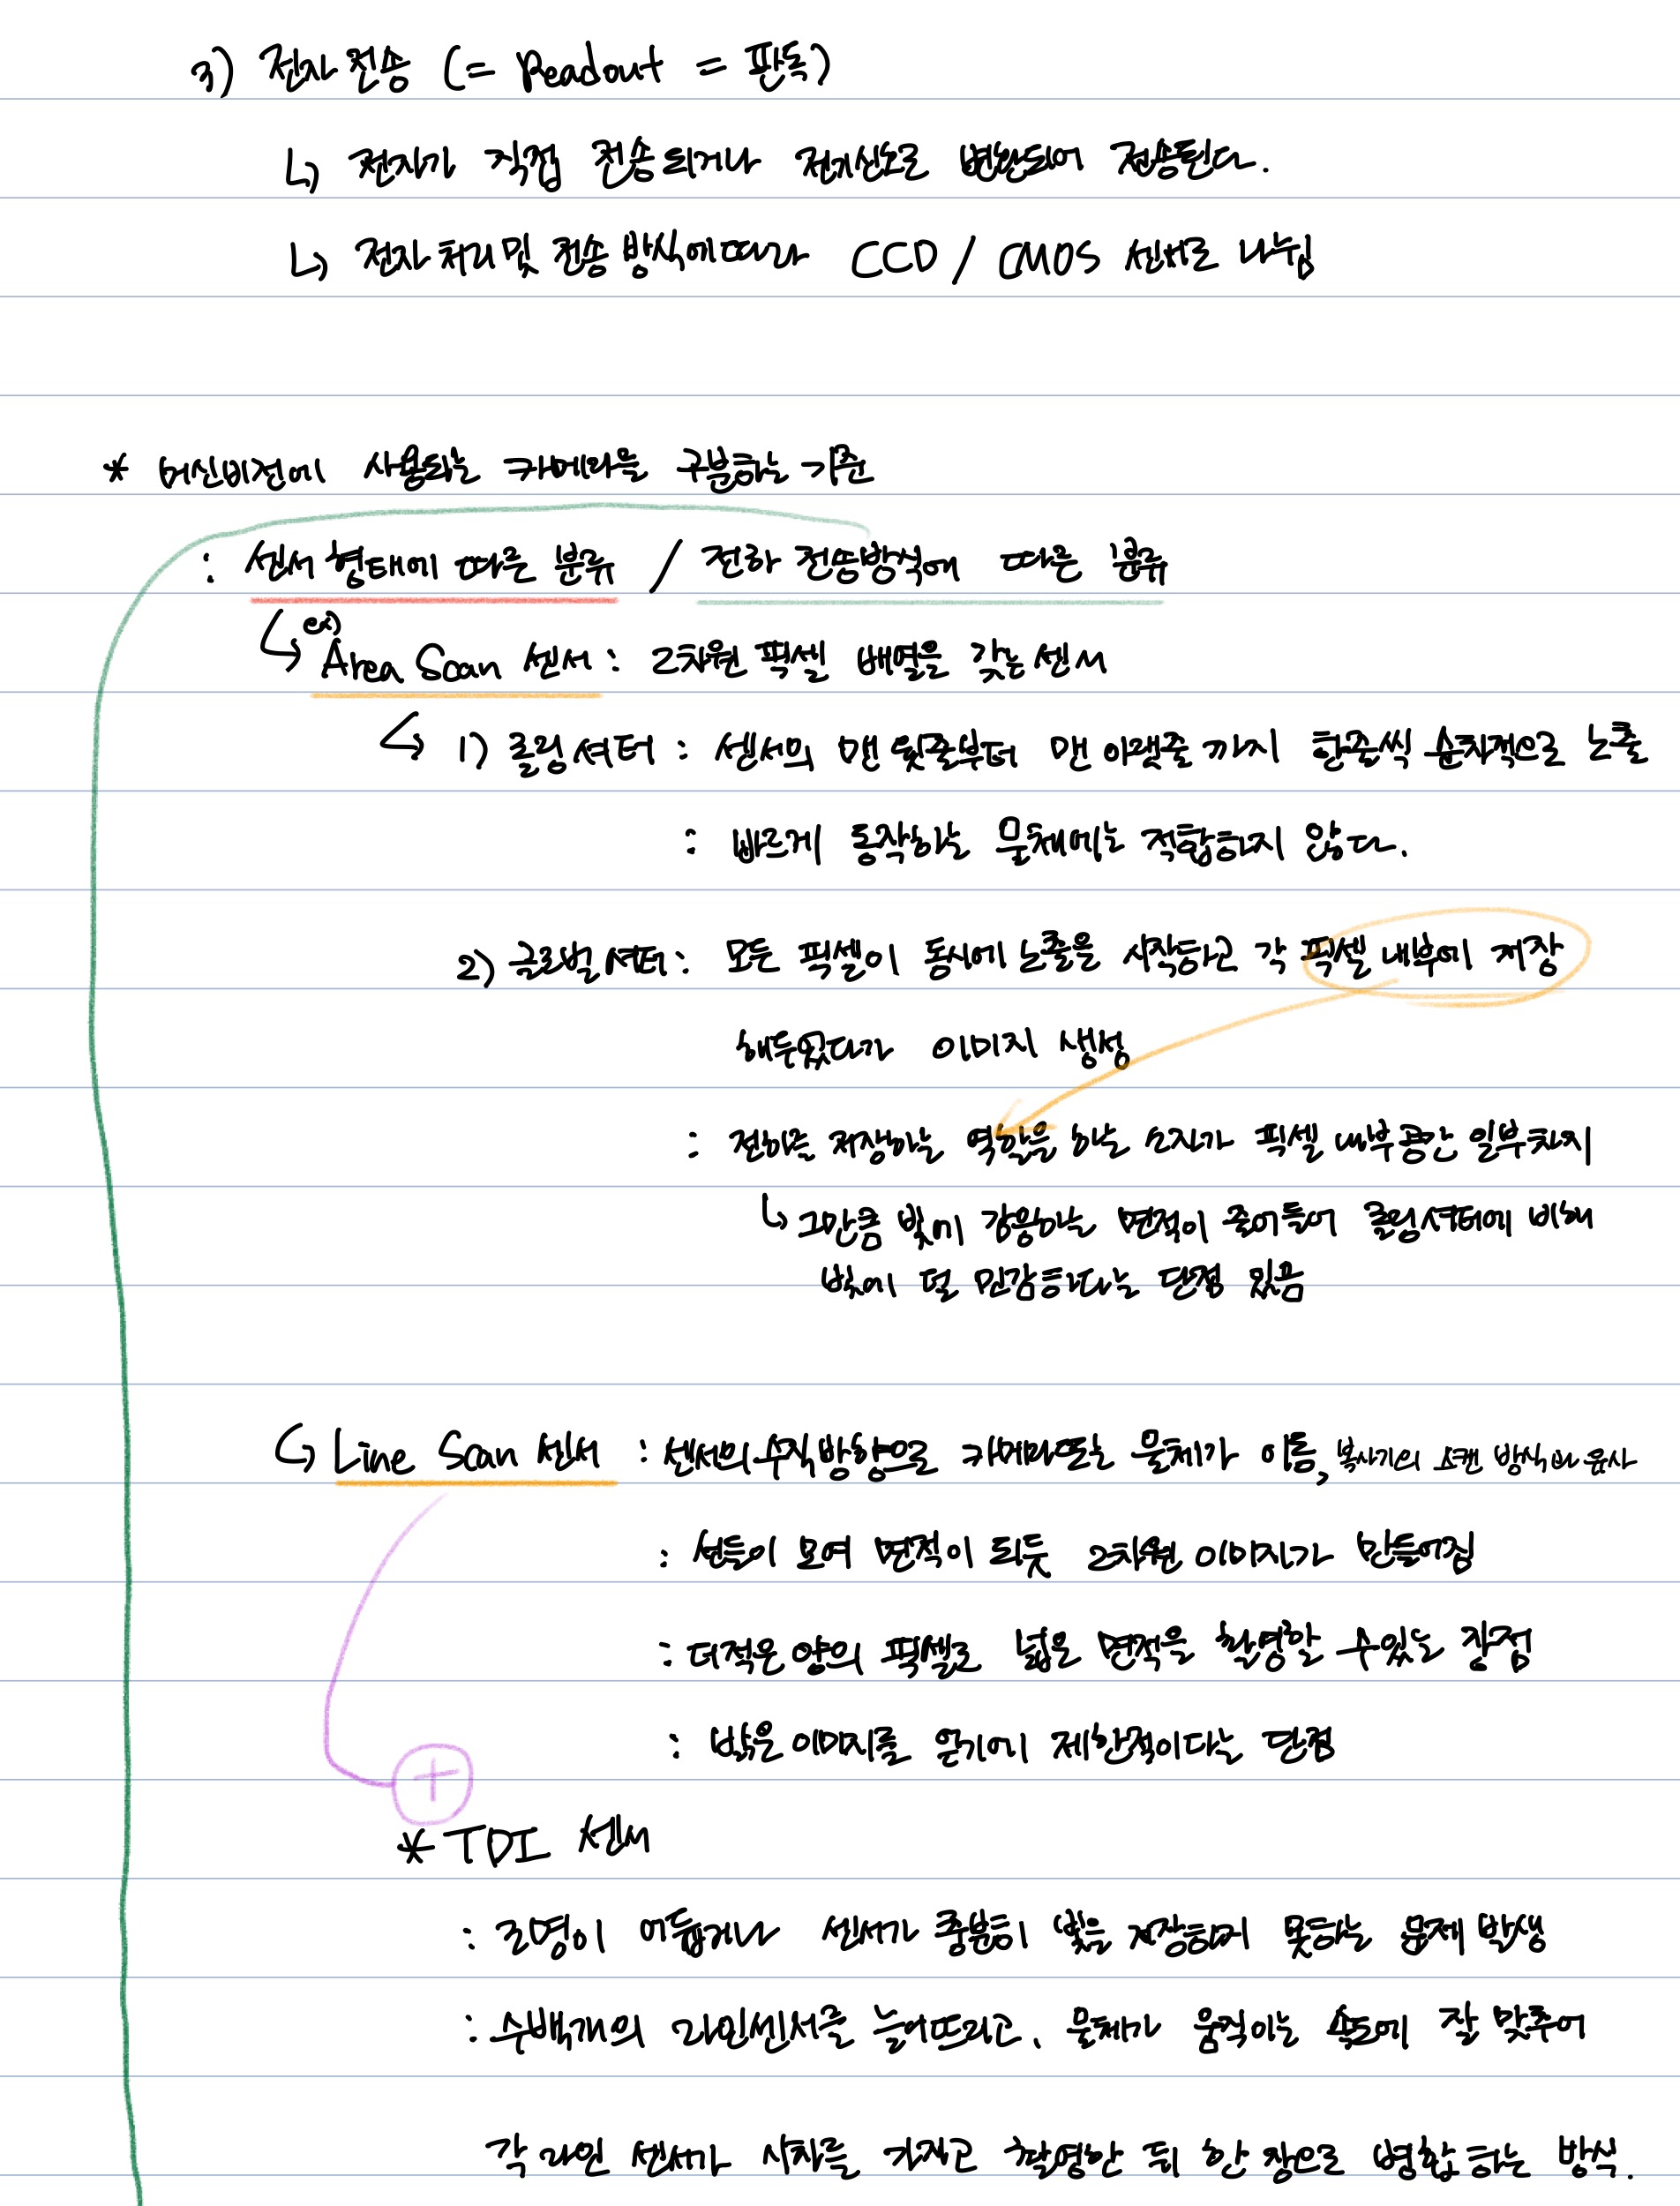 3) 전자 전송 (= Readout = 판독)
↳ 전자가 직접 전송되거나 전기신호로 변환되어 전송된다.
↳ 전자 처리 및 전송 방식에 따라 CCD / CMOS 센서로 나뉨
* 머신비전에 사용되는 카메라를 구분하는 기준
: 센서 형태에 따른 분류 / 전하 전송방식에 따른 분류
↳ ex) Area Scan 센서 : 2차원 픽셀 배열을 갖는 센서
↳ 1) 롤링 셔터 : 센서의 맨 윗줄부터 맨 아랫줄 까지 한줄씩 순차적으로 노출
: 빠르게 동작하는 물체에는 적합하지 않다.
2) 글로벌 셔터 : 모든 픽셀이 동시에 노출을 시작하고 각 픽셀 내부에 저장
해두었다가 이미지 생성
: 전하를 저장하는 역할을 하는 소자가 픽셀 내부공간 일부차지
↳ 그만큼 빛에 감응하는 면적이 줄어들어 롤링셔터에 비해
빛에 덜 민감하다는 단점 있음
↳ Line Scan 센서 : 센서의 수직방향으로 카메라 또는 물체가 이동, 복사기의 스캔 방식과 유사
: 선들이 모여 면적이 되듯 2차원 이미지가 만들어짐
: 더 적은 양의 픽셀로 넓은 면적을 촬영할 수 있는 장점
: 밝은 이미지를 얻기에 제한적이다는 단점
+
* TDI 센서
: 조명이 어둡거나 센서가 충분히 빛을 저장하지 못하는 문제 발생
: 수백개의 라인센서를 늘어뜨리고, 물체가 움직이는 속도에 잘 맞추어
각 라인 센서가 시차를 가지고 촬영한 뒤 한 장으로 병합 하는 방식.